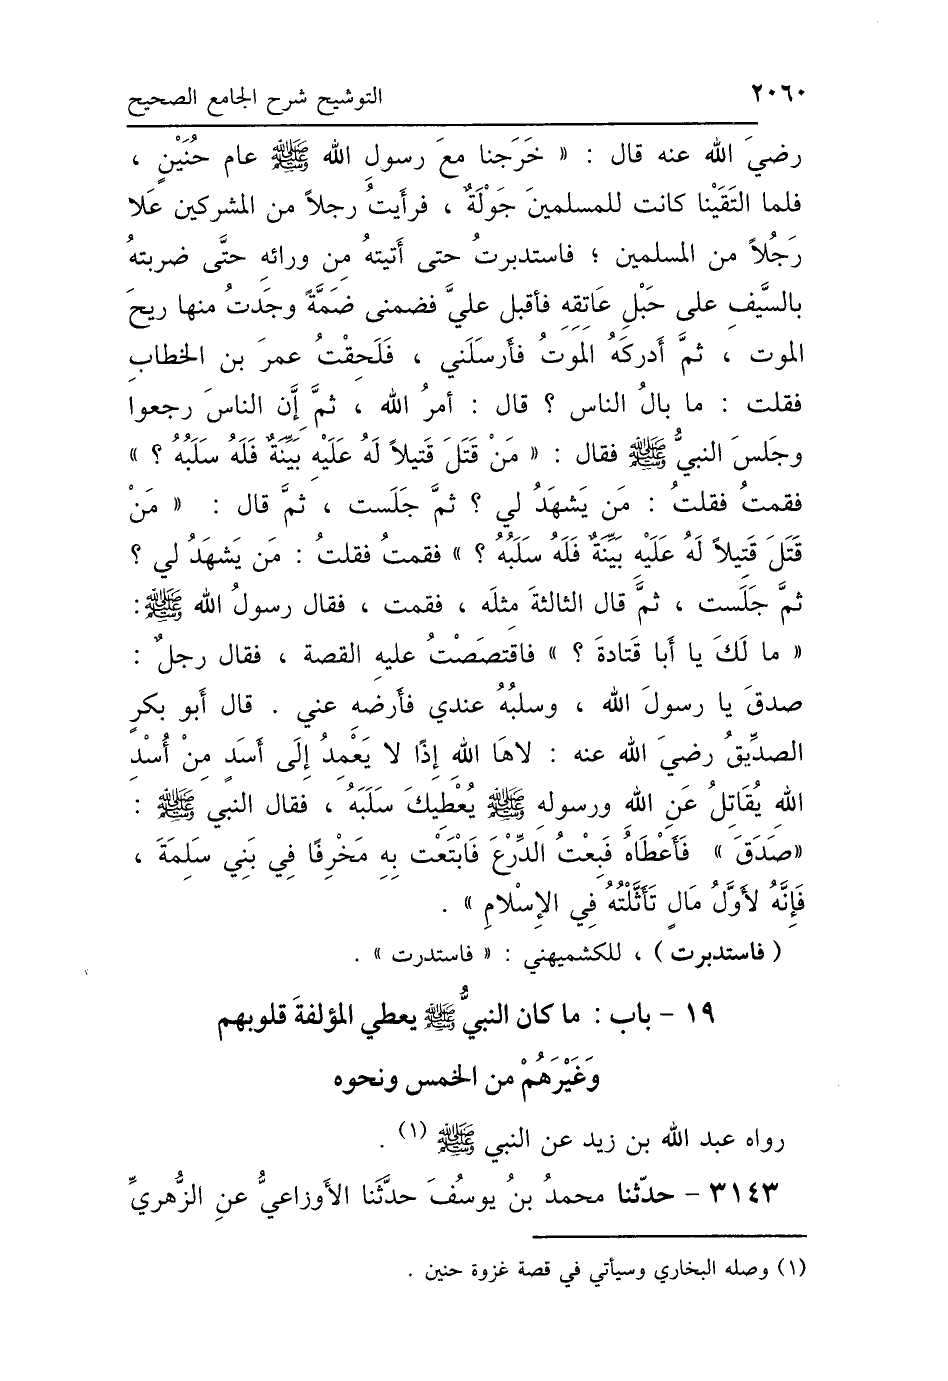 ٢٠٦٠ التوشيح شرح الجامع الصحيح
رضيَ الله عنه قال : « خَرَجنا معَ رسولِ الله ﷺ عام حُنَيْنٍ ،
فلما التَقَيْنا كانت للمسلمينَ جَوْلَةٌ ، فرأيتُ رجلاً من المشركين عَلا
رَجُلاً من المسلمين ؛ فاستدبرتُ حتى أتيتهُ من ورائهِ حتَّى ضربتهُ
بالسَّيفِ على حَبْلِ عَاتِقِهِ فأقبل عليَّ فضمنى ضَمَّةً وجَدتُ منها ريحَ
الموت ، ثمَّ أدركَهُ الموتُ فأرسَلَني ، فَلَحِقْتُ عمرَ بن الخطابِ
فقلت : ما بالُ الناس ؟ قال : أمرُ الله ، ثمَّ إنَّ الناسَ رجعوا
وجَلسَ النبيُّ ﷺ فقال : « مَنْ قَتَلَ قَتِيلاً لَهُ عَلَيْهِ بَيِّنَةٌ فَلَهُ سَلَبُهُ ؟ »
فقمتُ فقلتُ : مَن يَشهَدُ لي ؟ ثمَّ جَلَست ، ثمَّ قال : « مَنْ
قَتَلَ قَتِيلاً لَهُ عَلَيْهِ بَيِّنَةٌ فَلَهُ سَلَبُهُ ؟ » فقمتُ فقلتُ : مَن يَشهَدُ لي ؟
ثمَّ جَلَست ، ثمَّ قال الثالثةَ مثلَه ، فقمت ، فقال رسولُ الله ﷺ :
« ما لَكَ يا أبا قَتادةَ ؟ » فاقتصَصْتُ عليهِ القصة ، فقال رجلٌ :
صدقَ يا رسولَ الله ، وسلبُهُ عندي فأرضهِ عني . قال أبو بكرٍ
الصدِّيقُ رضيَ الله عنه : لاهَا اللهِ إذًا لا يَعْمِدُ إلَى أسَدٍ مِنْ أُسْدِ
اللهِ يُقَاتِلُ عَنِ اللهِ ورسوله ﷺ يُعْطِيكَ سَلَبَهُ ، فقال النبي ﷺ :
«صَدَقَ » فَأَعْطَاهُ فَبِعْتُ الدِّرْعَ فَابْتَعْت بِهِ مَخْرِفًا فِي بَنِي سَلِمَةَ ،
فَإِنَّهُ لأَوَّلُ مَالٍ تَأَثَّلْتُهُ فِي الإِسْلامِ » .
( فاستدبرت ) ، للكشميهني : « فاستدرت » .
١٩ - باب : ما كان النبيُّ ﷺ يعطي المؤلفةَ قلوبهم
وَغَيْرَهُمْ من الخمس ونحوه
رواه عبد الله بن زيد عن النبي ﷺ (١) .
٣١٤٣ - حدّثنا محمدُ بنُ يوسُفَ حدَّثَنا الأوزاعيُّ عنِ الزُّهريِّ
(١) وصله البخاري وسيأتي في قصة غزوة حنين .